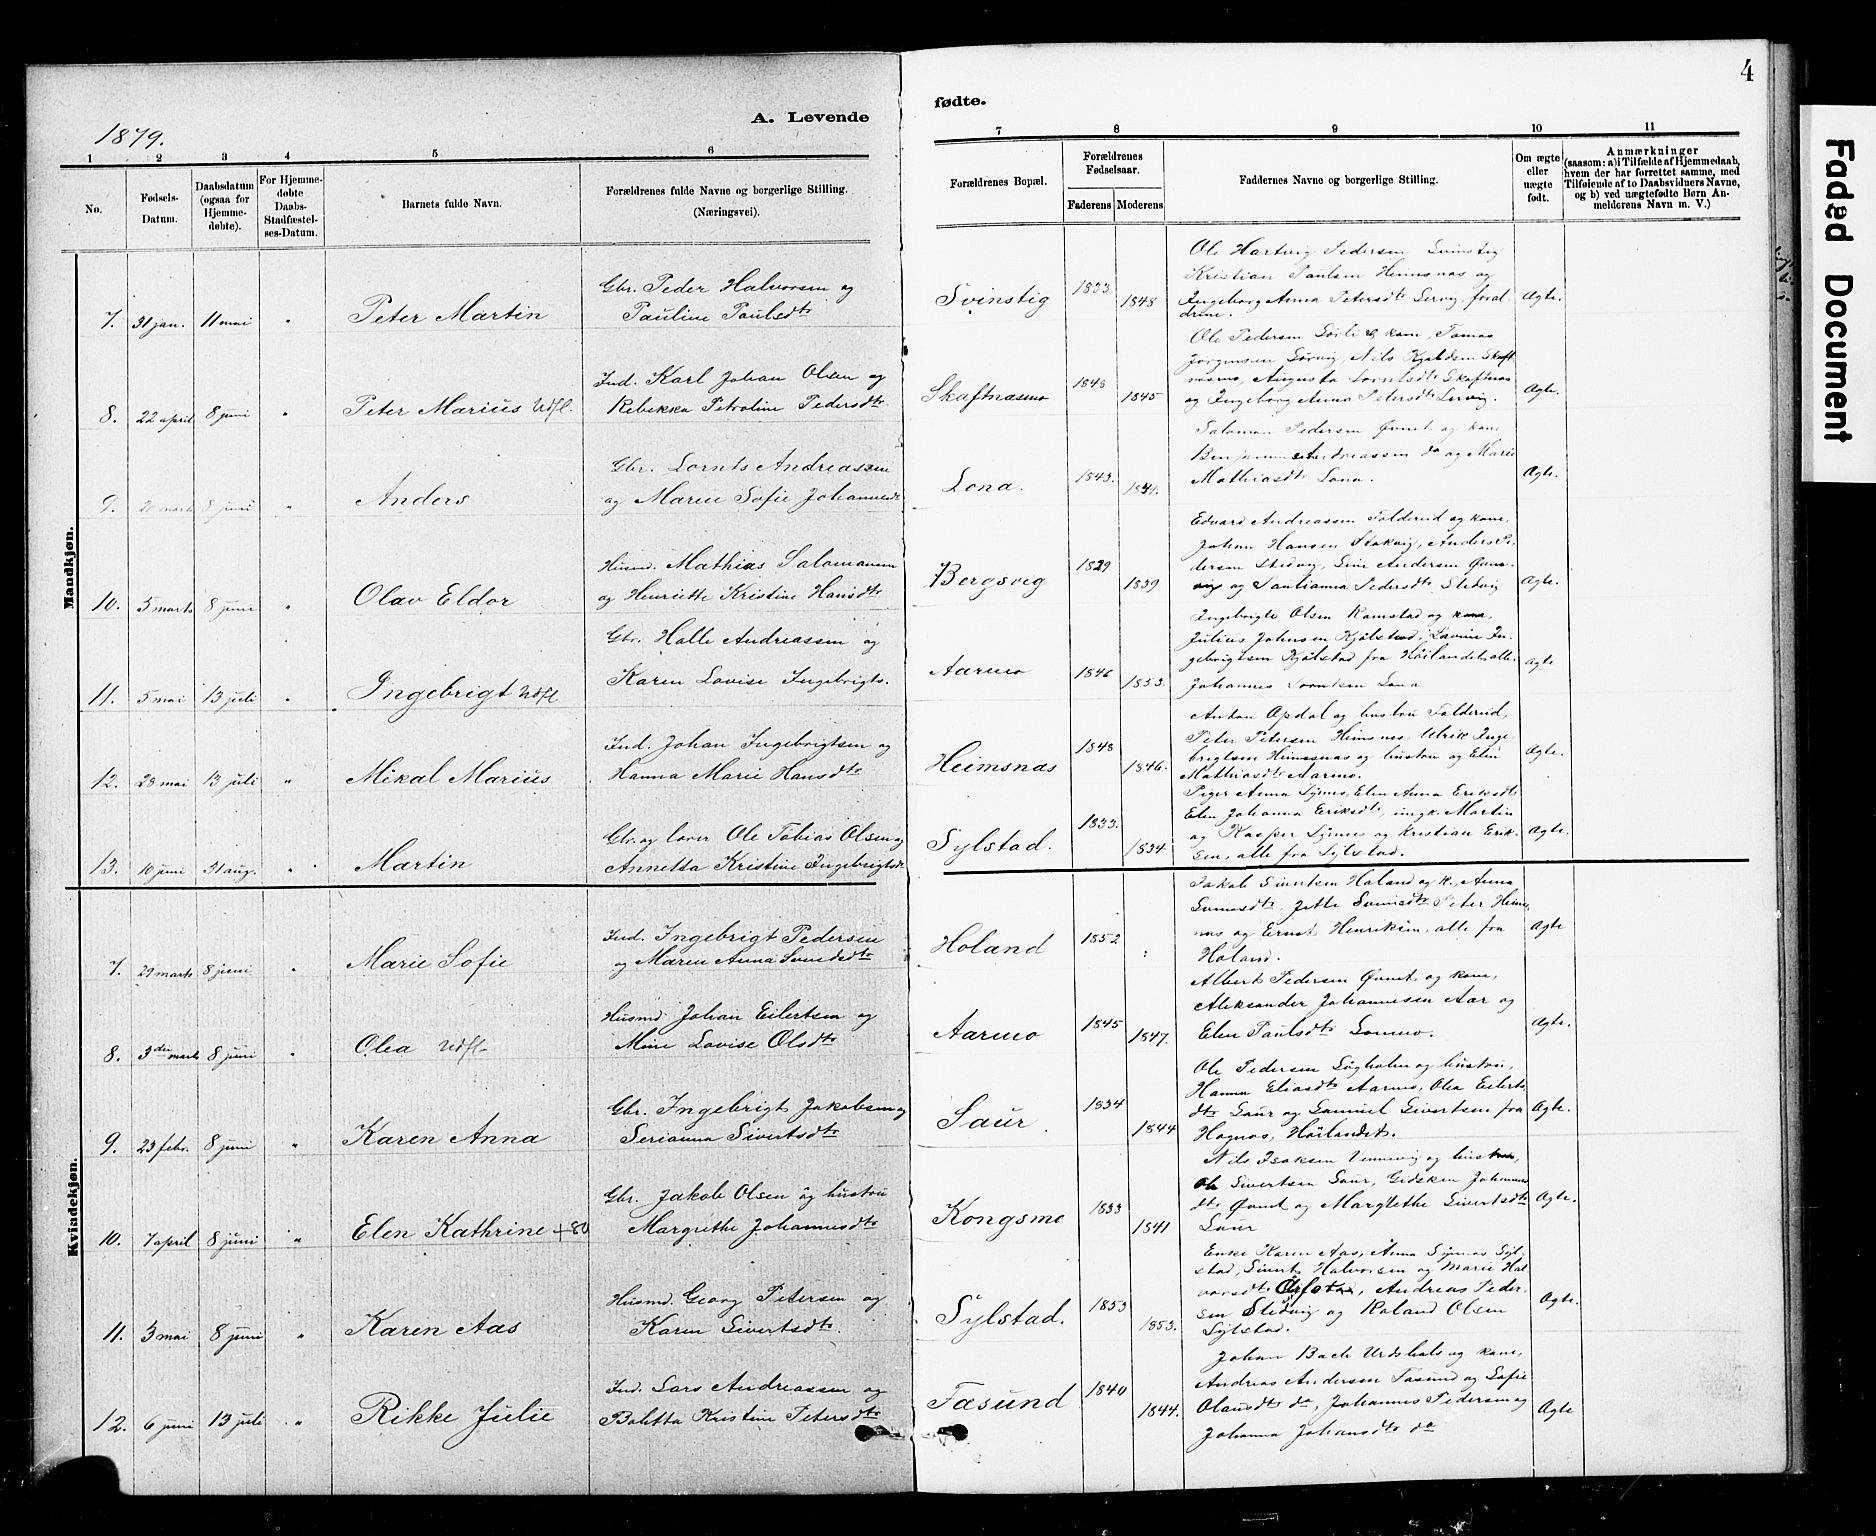 4
1879.
A. Levende
fødte.
1 2 3 4 5 6 7 8 9 10 11
No.
Fødsels-Datum.
Daabsdatum (ogsaa for Hjemmedøbte).
For Hjemmedøbte Daabs-Stadfæstelses-Datum.
Barnets fulde Navn.
Forældrenes fulde Navne og borgerlige Stilling. (Næringsvei).
Forældrenes Bopæl.
Forældrenes Fødselsaar.
Faderens Moderens
Faddernes Navne og borgerlige Stilling.
Om ægte eller uægte født.
Anmærkninger
(saasom: a) i Tilfælde af Hjemmedaab, hvem der har forrettet samme, med Tilføiende af to Daabsvidners Navne, og b) ved uægtefødte Børn Anmelderens Navn m. V.)
Mandkjøn.
7. 31 jan. 11 mai " Peter Martin
Gbr. Peder Halvorsen og
Pauline Paulsdtr
Svinstig 1833 1848
Ole Hartvig Pedersen Svinstig
Kristian Paulsen Heimsnæs og
Ingeborg Anna Petersdtr Lervig, foræl-
drene.
Ægte.
8. 22 april 8 juni " Peter Marius Udfl.
Ind. Karl Johan Olsen og
Rebekka Petroline Pedersdtr
Skaftnæsmo 1848 1845
Ole Pedersen Sørli og kone, Tomas
Jørgensen Sørvig, Nils Kjeldsen Skaft-
næsmo, Augusta Lorntsdtr Skaftnæs
og Ingeborg Anna Petersdtr Lervig.
Ægte.
9. 20 marts 8 juni " Anders
Gbr. Lornts Andreassen
og Maren Sofie Johannesdtr
Lona. 1843. 1841.
Salomon Pedersen Øvnet og kone
Benjamin Andreassen do og Marie
Mathiasdtr Lona.
Ægte.
10. 5 marts 8 juni " Olav Eldor
Husmd. Mathias Salomonsen
og Henriette Kristine Hansdtr
Bergsvig 1829 1839
Edvard Andreassen Foldereid og kone,
Johan Hansen Stokvig, Anders Pe-
dersen Stedvig, Line Andersen
og Santianna Pedersdtr Stedvig
Ægte.
11. 5 mai 13 juli " Ingebrigt Udfl
Gbr. Halle Andreassen og
Karen Lovise Ingebrigts.
Aarmo 1846 1853.
Ingebrigt Olsen Ramstad og kone,
Julius Johnsen Kjølstad, Lavine In-
gebrigtsen Kjølstad fra Höilandet alle.
Johannes Lorntsen Lona
Ægte
12. 28 mai 13 juli " Mikal Marius
Ind. Johan Ingebrigtsen og
Hanna Marie Hansdtr
Heimsnæs 1848 1846.
Anton Opdal og hustru Foldereid,
Peter Petersen Heimsnes, Ulrik Inge-
brigtsen Heimsnæs og hustru og Elen
Mathiasdtr Aarmo.
Ægte.
13. 10 juni 31 aug. " Martin
Gbr. og lærer Ole Tobias Olsen og
Annetta Kristine Ingebrigtsdtr
Sylstad. 1833. 1834
Piger Anna Synnes, Elen Anna Eriksdtr
Elen Johanna Eriksdtr, ungk. Martin
og Kasper Synnes og Kristian Erik-
sen, alle fra Sylstad.
Ægte.
Kvindekjøn.
7. 29 marts 8 juni " Marie Sofie
Ind. Ingebrigt Pedersen
og Maren Anna Svendsdtr
Holand 1852
Jakob Sivertsen Holand og k., Anna
Svensdtr, Jette Svensdtr Peter Heims-
næs og Ernst Henriksen, alle fra
Holand.
Ægte
8. 3die marts 8 juni " Olea Udfl.
Husmd Johan Eilertsen og
Mine Lovise Olsdtr
Aarmo 1845 1847.
Albert Pedersen Øvnet og kone,
Aleksander Johannesen Aar og
Elen Paulsdtr Lonmo.
Ægte.
9. 23 febr. 8 juni " Karen Anna
Gbr. Ingebrigt Jakobsen og
Serianna Sivertsdtr
Saur. 1834 1844
Ole Pedersen Søgholm og hustru,
Hanna Eliasdtr Aarmo, Olea Eilerts-
dtr Saur og Samuel Sivertsen fra
Hognæs, Höilandet.
Ægte.
10. 7 april 8 juni " Elen Kathrine +80
Gbr. Jakob Olsen og hustru
Margrethe Johannesdtr
Kongsmo 1833 1841
Nils Isaksen Vennevig og hustru,
Ole Sivertsen Saur, Gidsken Johannes-
dtr Øvnet og Margrethe Sivertsdtr
Saur
Ægte.
11. 3 mai 8 juni " Karen Aas
Husmd. Georg Petersen og
Karen Sivertsdtr.
Sylstad. 1853 1853.
Enke Karen Aas, Anna Synnes Syl-
stad, Sivert Halvorsen og Marie Hal-
vorsdtr, Andreas Peder-
sen Stedvig og Roland Olsen
Sylstad.
Ægte.
12. 6 juni 13 juli " Rikke Julie
Ind. Lars Andreassen og
Boletta Kristine Petersdtr
Fasund 1840 1844.
Johan Bach Urdshals og kone,
Andreas Andersen Fasund og Sofie
Olausdtr do, Johannes Pedersen og
Johanna Johansdtr do
Ægte
Faded Document